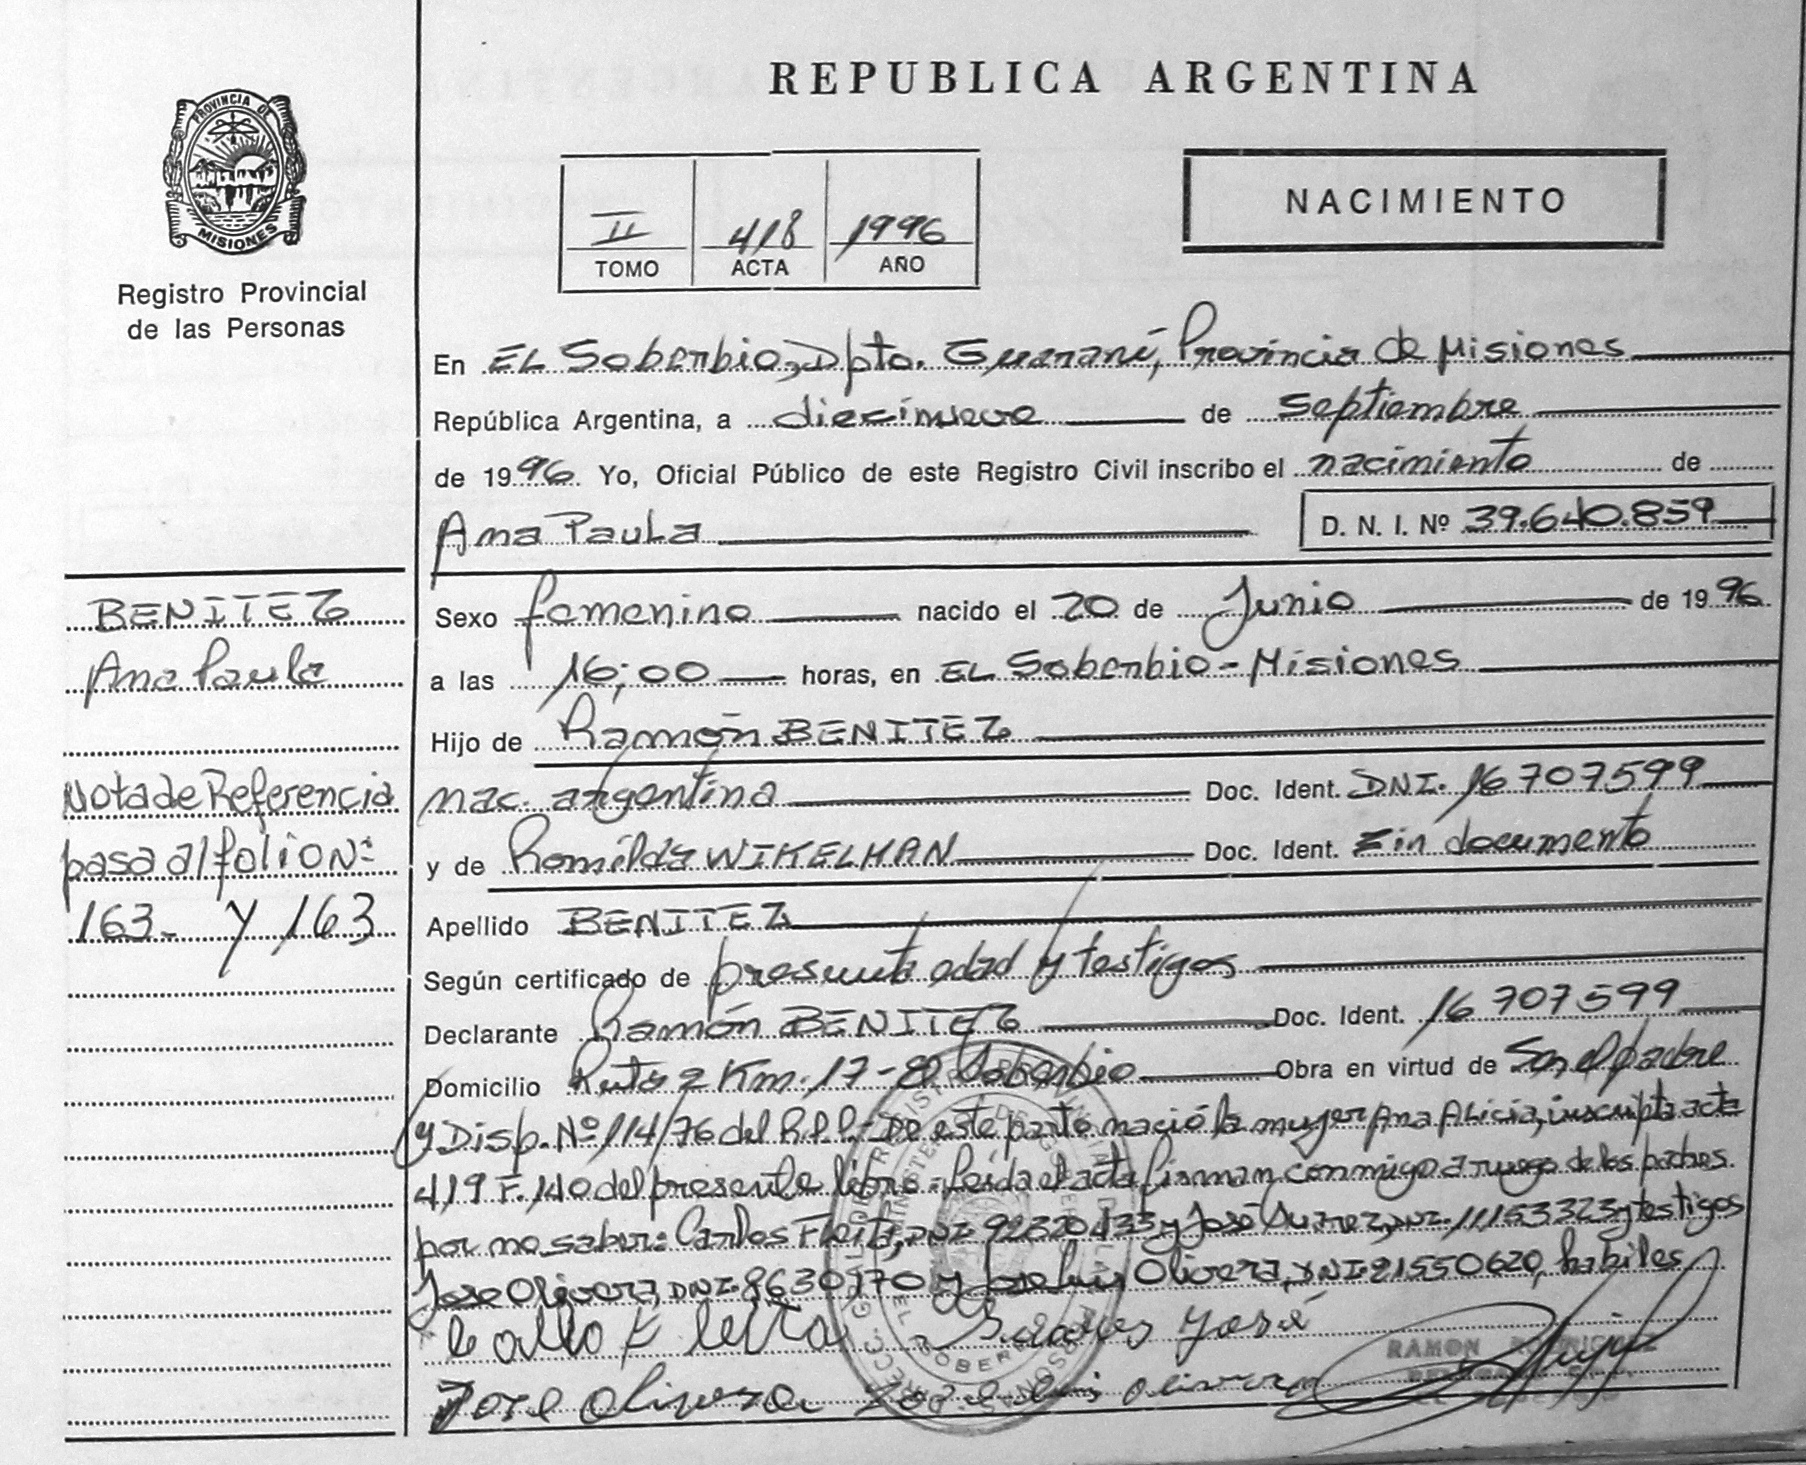 REPUBLICA ARGENTINA
PROVINCIA DE
MISIONES
Registro Provincial
de las Personas
II 418 1996
TOMO ACTA AÑO
NACIMIENTO
En EL Soberbio, Dpto. Guaraní, Provincia de Misiones
República Argentina, a diecinueve de septiembre
de 1996 Yo, Oficial Público de este Registro Civil inscribo el nacimiento de
Ana Paula D. N. I. Nº 39.640.859
BENITEZ
Ana Paula
Nota de Referencia
pasa al folio Nº
163- y 163
Sexo femenino nacido el 20 de Junio de 1996
a las 16;00 horas, en EL Soberbio - Misiones
Hijo de Ramón BENITEZ
nac. argentina Doc. Ident. DNI. 16 707599
y de Romilda WIKELMAN Doc. Ident. Sin documento
Apellido BENITEZ
Según certificado de presunta edad y testigos
Declarante Ramón BENITEZ Doc. Ident. 16 707599
Domicilio Ruta 2 Km. 17 - El Soberbio Obra en virtud de Ser el padre
y Disp. Nº 114/76 del R.P.P.- De este parto nació la mujer Ana Alicia, inscripta acta
419 F. 140 del presente libro.- Leída el acta firman conmigo a ruego de los padres
por no saber: Carlos Fleita, DNI. y José Suarez, DNI. 11153323 y testigos
Jose Olivera, DNI. 8630170 y Jose Luis Olivera, DNI 21550620, habiles
Suares José
Jose Olivera Jose Luis Olivera
RAMON RODRIGUEZ